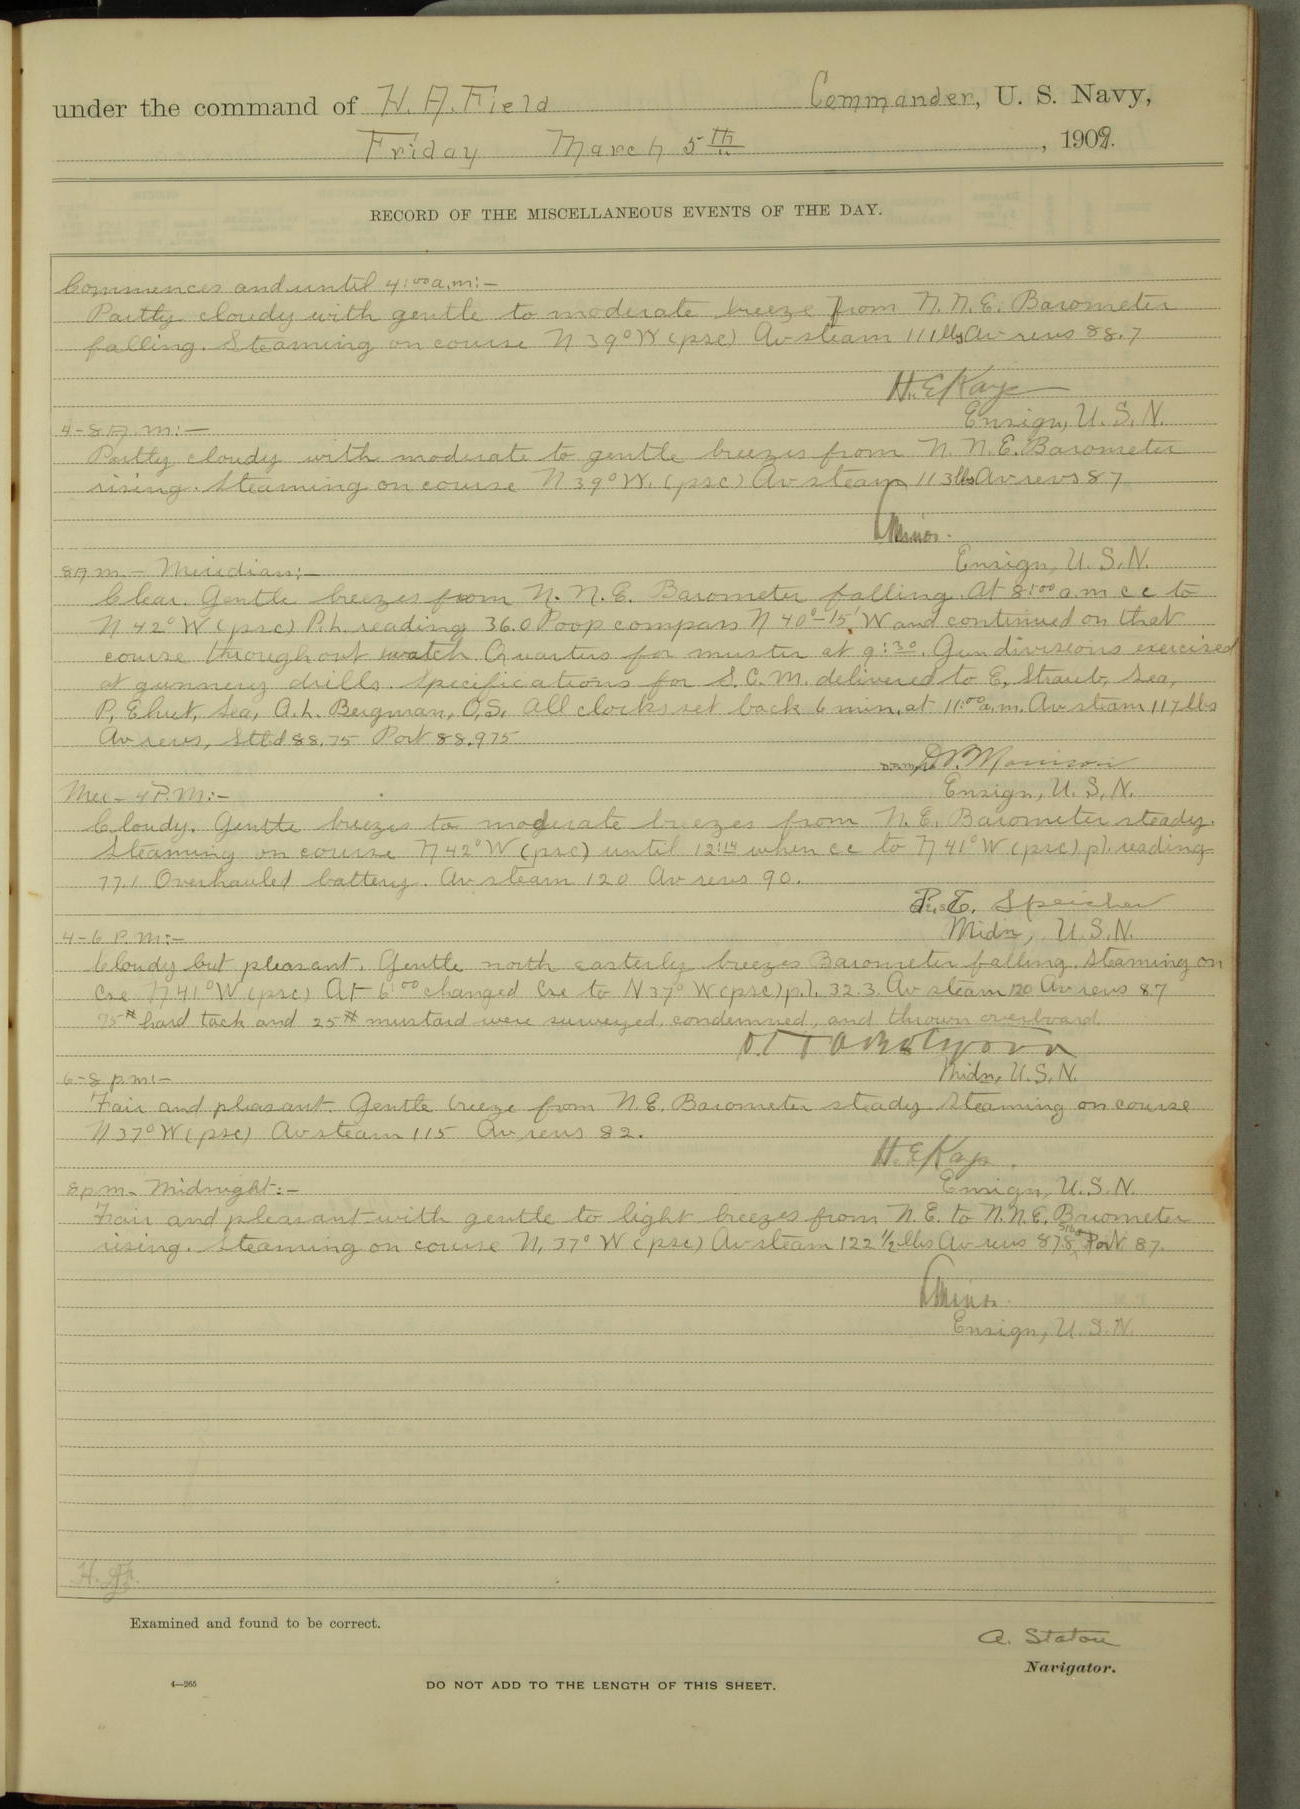 under the command of H. A. Field Commander, U. S. Navy,
Friday March 5th, 1909.
RECORD OF THE MISCELLANEOUS EVENTS OF THE DAY.
Commences and until 4:00 a.m:-
Partly cloudy with gentle to moderate breeze from N.N.E. Barometer
falling. Steaming on course N 39° W (psc) Av steam 111 lbs Av revs 88.7
H. E. Kays
Ensign, U. S. N.
4-8 A.m:-
Partly cloudy with moderate to gentle breezes from N.N.E. Barometer
rising. Steaming on course N 39° W. (psc) Av steam 113 lbs Av revs 87
Minor.
Ensign, U. S. N.
8 A.m.- Meridian:-
Clear. Gentle breezes from N. N. E. Barometer falling. At 8:00 a.m cc to
N 42° W (psc) P.L. reading 36.0 Poop compass N 40°-15' W and continued on that
course throughout watch Quarters for muster at 9:30. Gun divisions exercised
at gunnery drills. Specifications for S. C. M. delivered to E. Straub, Sea,
P. Ehret, Sea, A. L. Bergman, O.S. All clocks set back 6 min. at 11:00 a.m. Av steam 117 lbs
Av revs, Stbd 88.75 Port 88.975
Morrison
Ensign, U. S. N.
Mer - 4 P.M:-
Cloudy. Gentle breezes to moderate breezes from N. E. Barometer steady.
Steaming on course N 42° W (psc) until 12:14 when cc to N 41° W (psc) p.l. reading
77.1 Overhauled battery. Av steam 120 Av revs 90.
Speicher
Midn, U.S.N.
4-6 P.m:-
Cloudy but pleasant. Gentle north easterly breezes Barometer falling. Steaming on
Cse N 41° W (psc) At 6:00 changed Cse to N 37° W (psc) p.l. 32.3. Av steam 120 Av revs 87
75# hard tack and 25# mustard were surveyed, condemned, and thrown overboard.
Midn, U.S.N.
6-8 p.m:-
Fair and pleasant. Gentle breeze from N.E. Barometer steady. Steaming on course
N 37° W (psc) Av steam 115 Av revs 82.
H. E. Kays.
Ensign, U.S.N.
8 p.m.- Midnight:-
Fair and pleasant with gentle to light breezes from N.E. to N.N.E. Barometer
rising. Steaming on course N. 37° W (psc) Av steam 122 1/2 lbs Av revs 87.8 Stbd Port 87.
Minor.
Ensign, U.S.N.
H. A. F.
Examined and found to be correct.
A. Staton
Navigator.
4—265
DO NOT ADD TO THE LENGTH OF THIS SHEET.